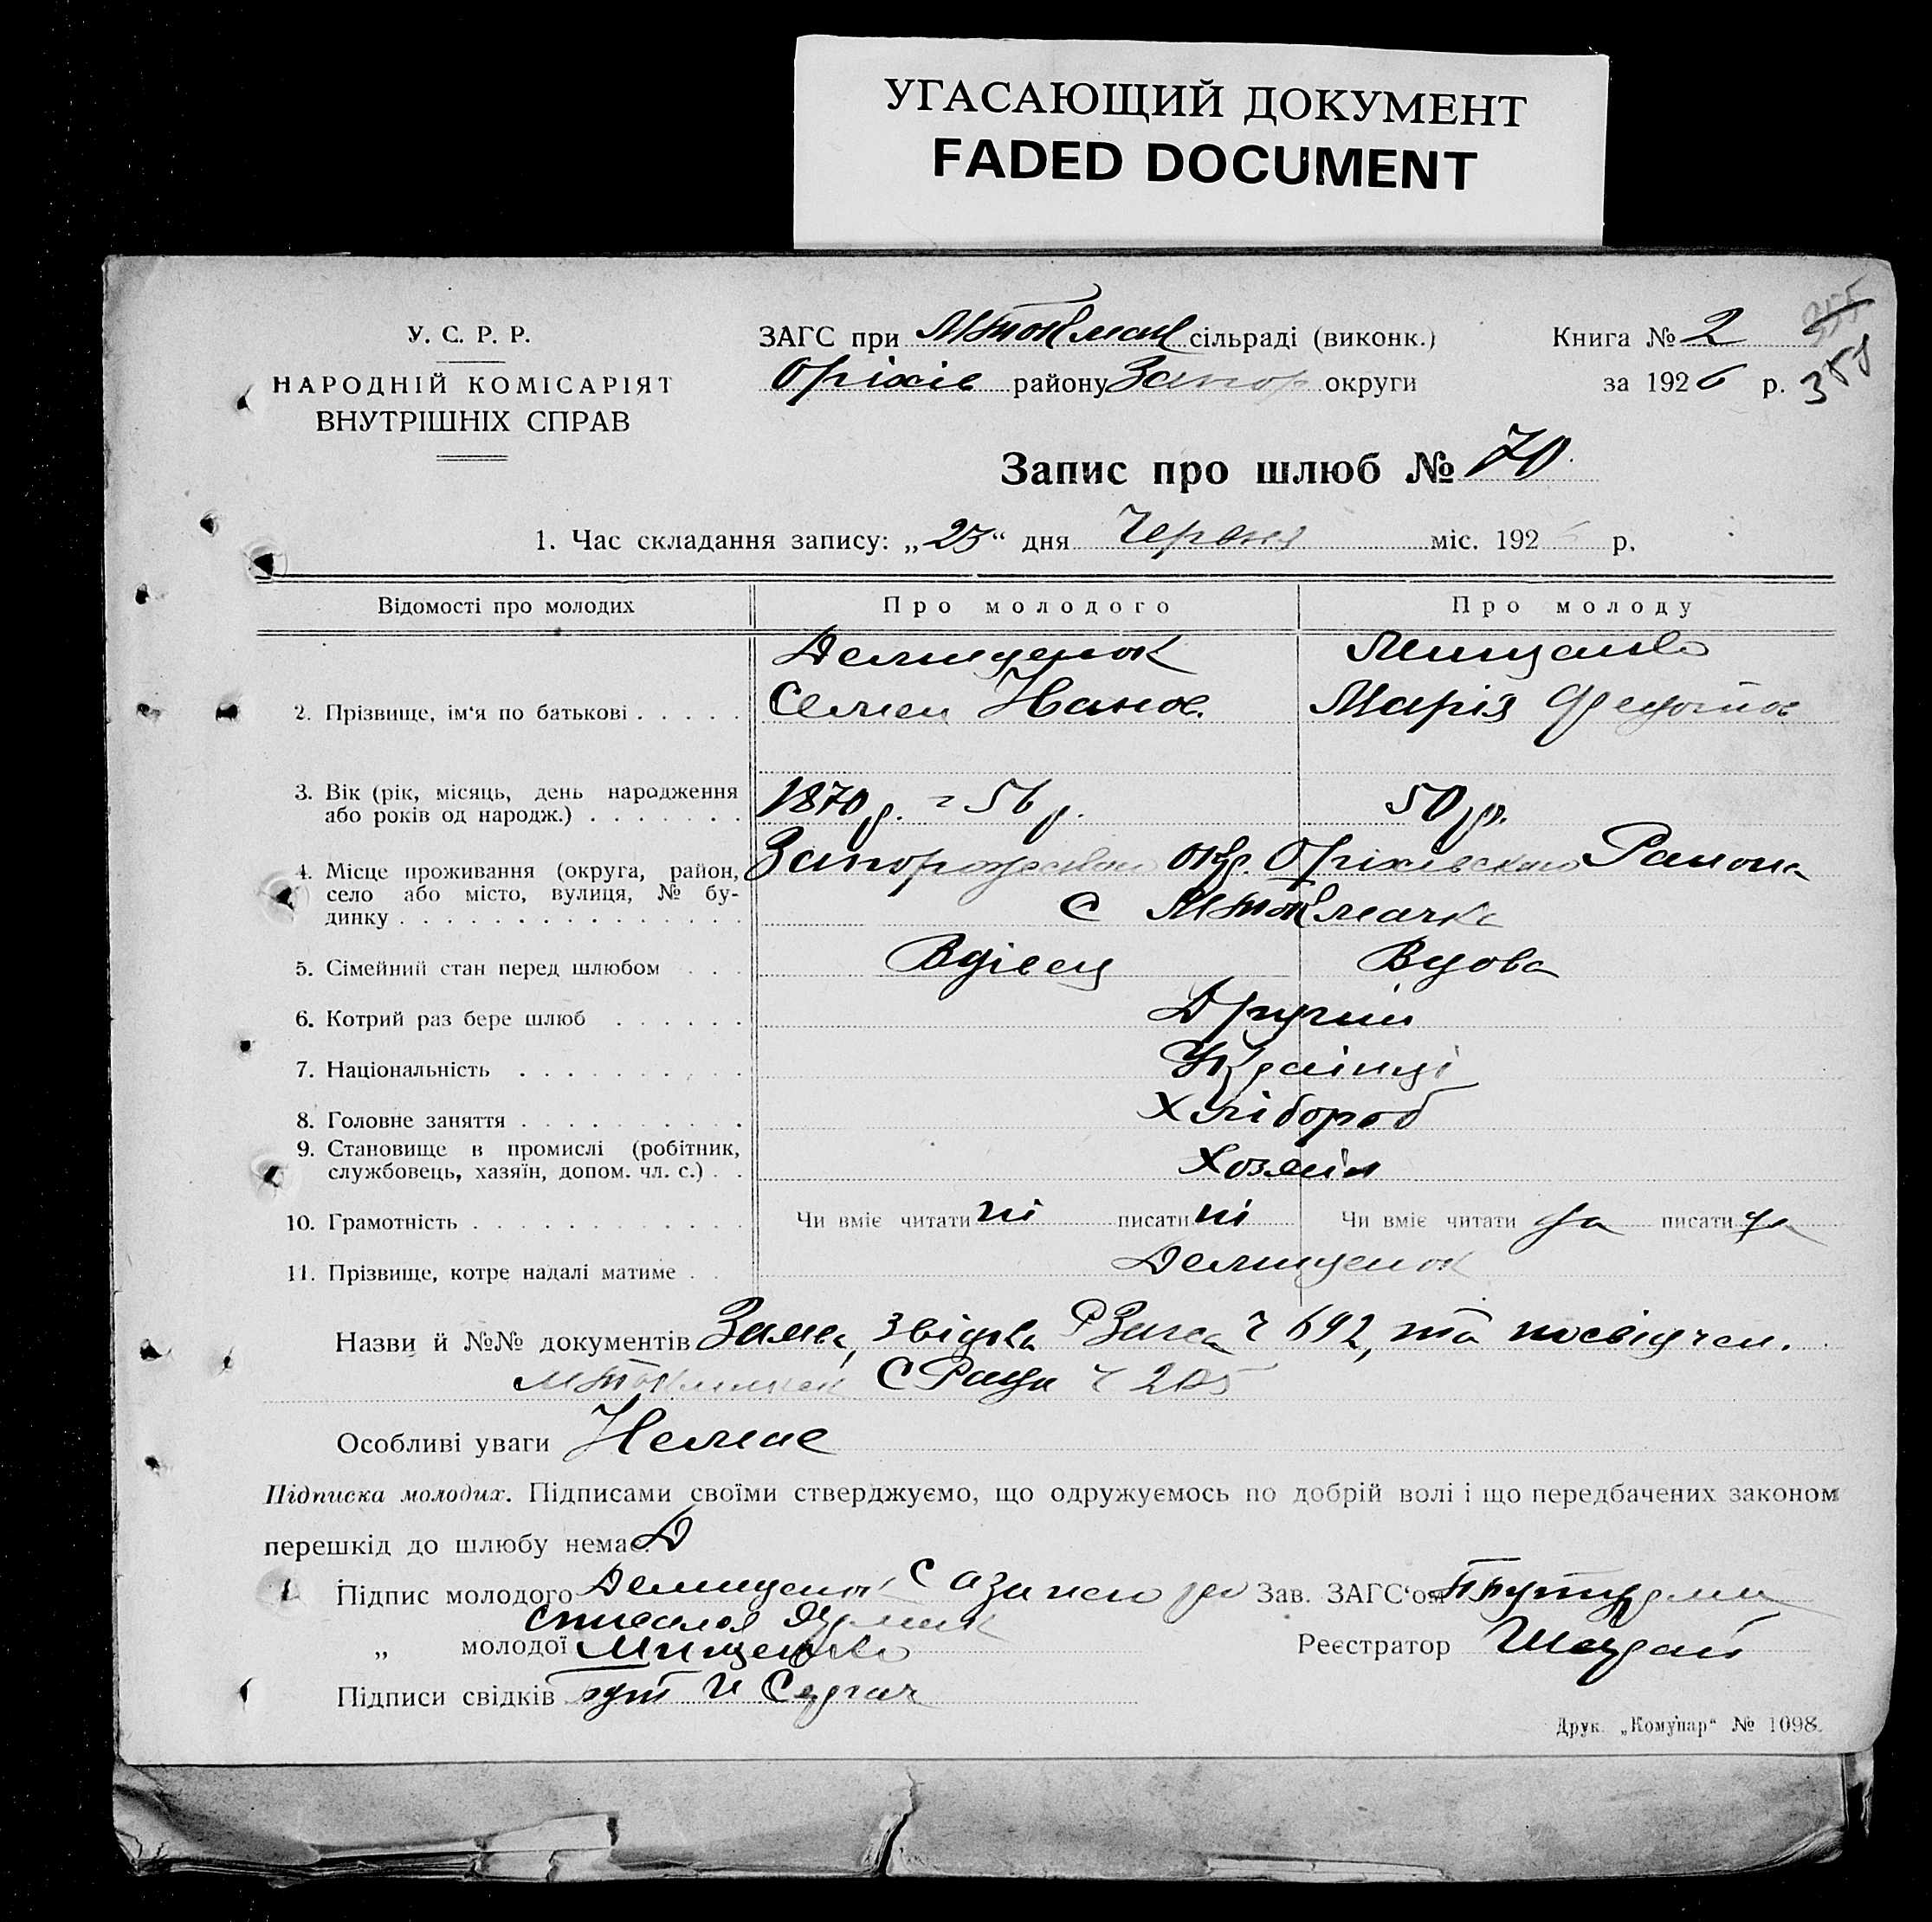 УГАСАЮЩИЙ ДОКУМЕНТ
FADED DOCUMENT
У. С. Р. Р.
НАРОДНІЙ КОМІСАРІЯТ
ВНУТРІШНІХ СПРАВ
ЗАГС при МТокмац сільраді (виконк.)
Оріхів району Запор округи
Книга № 2
за 1926 р.
355
358
Запис про шлюб № 70
1. Час складання запису: „23“ дня Червня міс. 192 р.
Відомості про молодих Про молодого Про молоду
2. Прізвище, ім‘я по батькові
Демиденок
Семен Іванов.
Марія Федотов
3. Вік (рік, місяць, день народження
або років од народж.)
1870 р. = 56 р. 50 р.
4. Місце проживання (округа, район,
село або місто, вулиця, № бу-
динку
окр. Оріхівського Района
С МТокмачка
5. Сімейний стан перед шлюбом Вдівец Вдова
6. Котрий раз бере шлюб Другий
7. Національність Українці
8. Головне заняття Хлібороб
9. Становище в промислі (робітник,
службовець, хазяїн, допом. чл. с.) Хозяін
10. Грамотність Чи вміє читати ні писати ні Чи вміє читати да писати да
11. Прізвище, котре надалі матиме Демиденок
Назви й №№ документів Заява, звідка РЗагса ч 692, та посвідчен.
СРади ч 205
Особливі уваги Немає
Підписка молодих. Підписами своїми стверджуємо, що одружуємось по добрій волі і що передбачених законом
перешкід до шлюбу немає.
Підпис молодого Демиденок С а за него
Зав. ЗАГС‘ом
„ молодої Мищенко
Реєстратор
Підписи свідків
Друк. „Комунар“ № 1098.